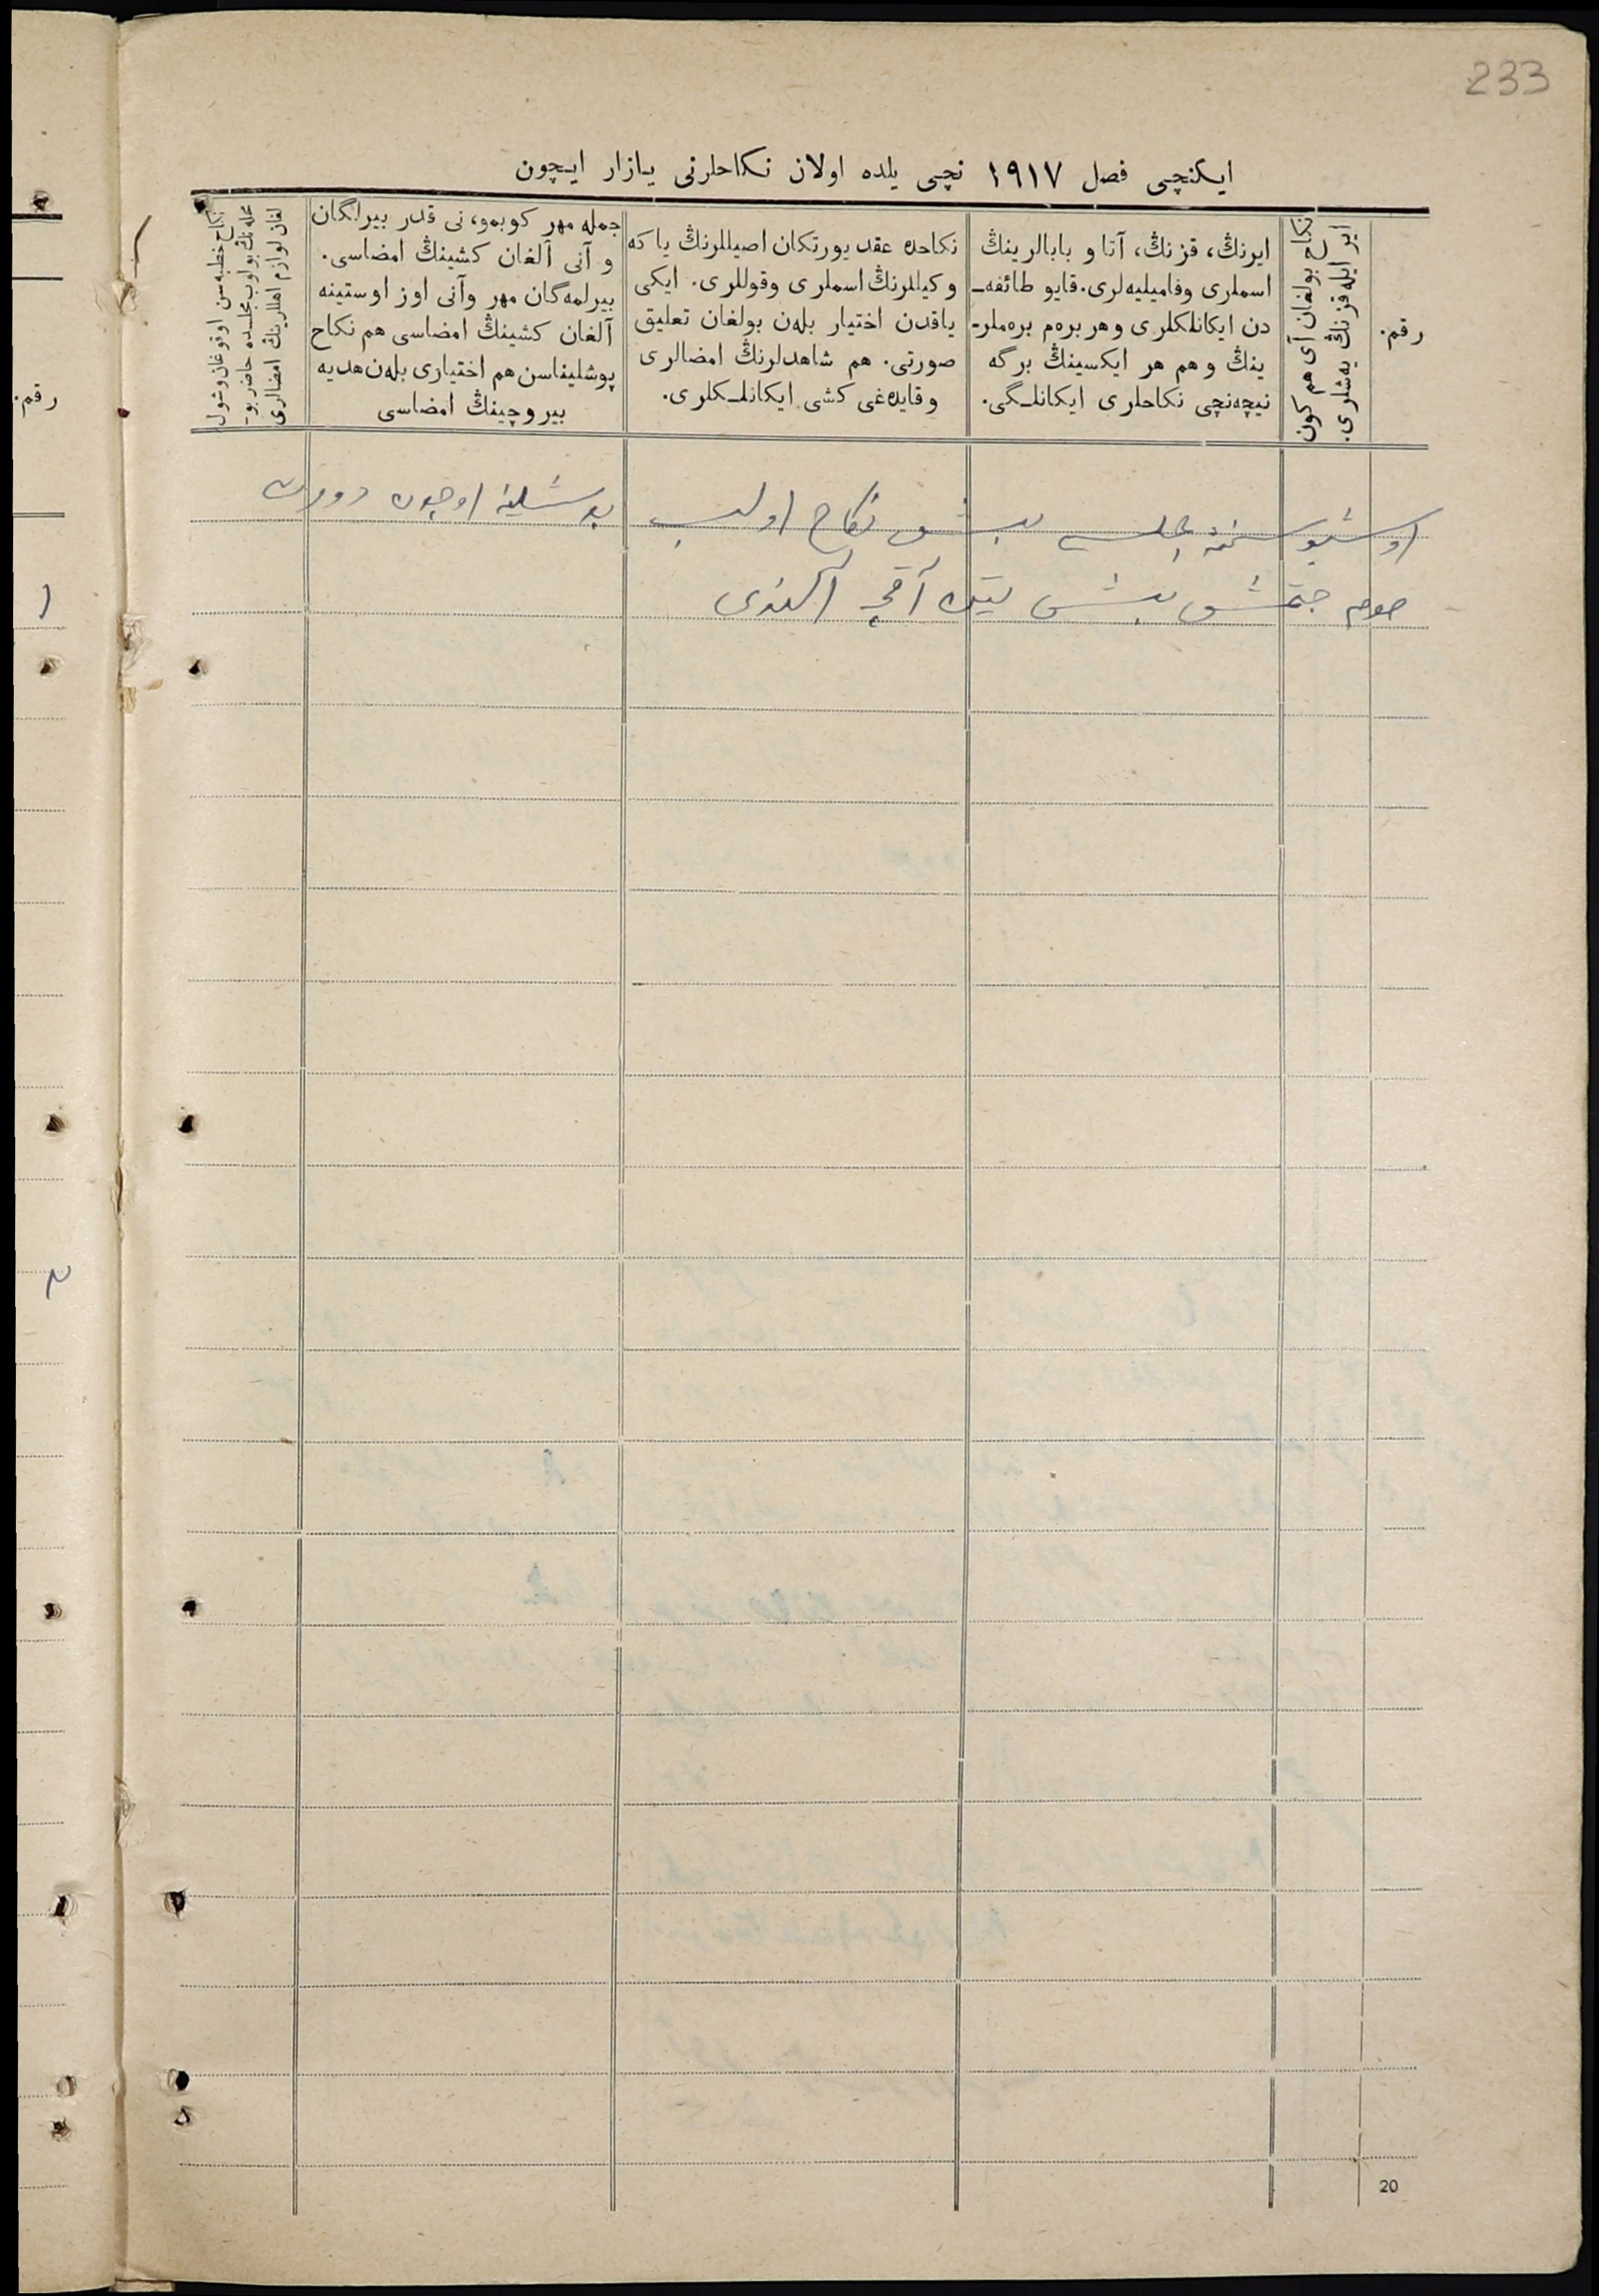 233
ایکنچی فصل ۱۹۱۷ نچی یلده اولان نکاحلرنی یازار ایچون
رقم.
نکاح بولغان آی هم کون
ایر ایله قزنڭ یەشلری.
ایرنڭ، قزنڭ، آتا و بابالرینڭ
اسملری وفامیلیەلری. قایو طائفەـ
دن ایکانلکلری وهر برەم برەملرـ
ینڭ و هم هر ایکسینڭ برگه
نیچەنچی نکاحلری ایکانلـگی.
نکاحده عقد یورتکان اصیللرنڭ یا که
وکیللرنڭ اسملری وقوللری. ایکی
یاقدن اختیار بلەن بولغان تعلیق
صورتی. هم شاهدلرنڭ امضالری
وقایدەغی کشی ایکانلـکلری.
جمله مهر کوبمو، نی قدر بیرلگان
و آنی آلغان کشینڭ امضاسی.
بیرلمەگان مهر وآنی اوز اوستینه
آلغان کشینڭ امضاسی هم نکاح
پوشلیناسن هم اختیاری بلەن هدیه
بیروچینڭ امضاسی
نکاح خطبەسن اوقوغان وشول
محلەنڭ بولوب مجلسده حاضر بوـ
لغان لوازم اهللرینڭ امضالری
اوشبو سنەده بش نکاح اولب پوشلینه اوچون دورت
صوم جتمش بش تین آقچه آلندی
20
رقم.
۱
۲